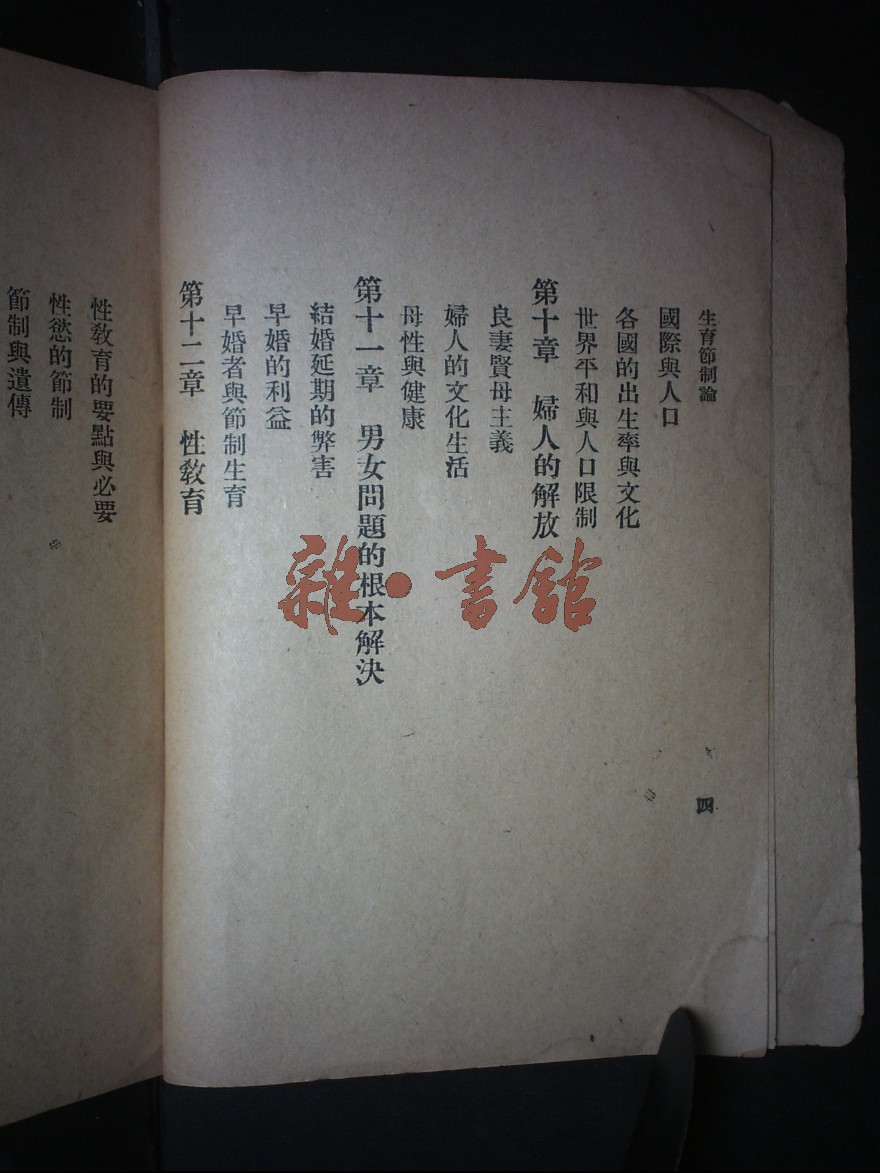 生育節制論
四
國際與人口
各國的出生率與文化
世界平和與人口限制
第十章　婦人的解放
良妻賢母主義
婦人的文化生活
母性與健康
第十一章　男女問題的根本解決
結婚延期的弊害
早婚的利益
早婚者與節制生育
第十二章　性敎育
性敎育的要點與必要
性慾的節制
節制與遺傳
雜·書館